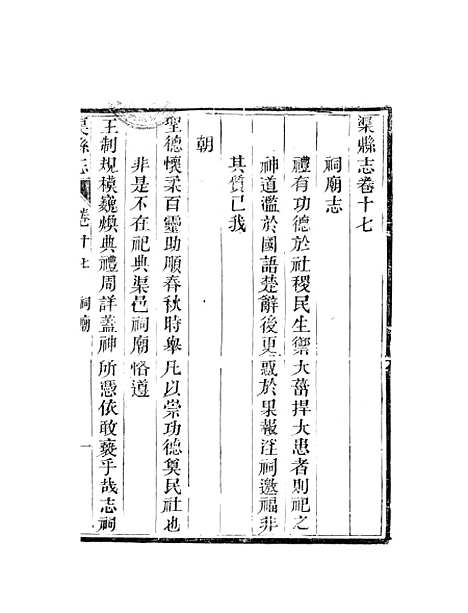 渠縣志卷十七
祠廟志
禮有功德於社稷民生禦大菑捍大患者則祀之
神道濫於國語楚辭後更惑於果報淫祠邀福非
其質已我
朝
聖德懷柔百靈助順春秋時舉凡以崇功德奠民社也
非是不在祀典渠邑祠廟恪遵
王制規模巍煥典禮周詳蓋神所憑依敢褻乎哉志祠
渠縣志 卷十七 祠廟 一